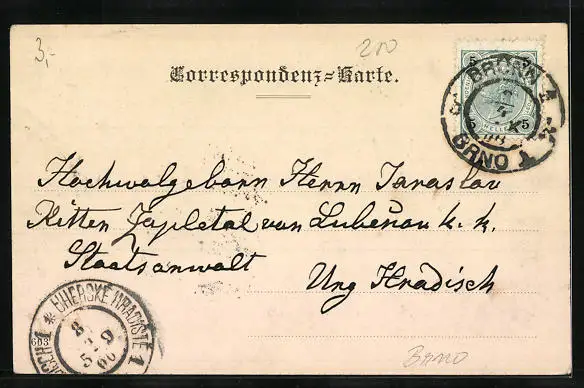 3,-
200
Correspondenz-Karte.
5 5
BRÜNN 1
BRNO 1
Hochwolgeborn Herrn Jaroslav
Ritten Zapletal von Luběnov k. k.
Staatsanwalt
Ung Hradisch
UHERSKÉ HRADIŠTĚ 1
8
5 9
00
603
BRNO